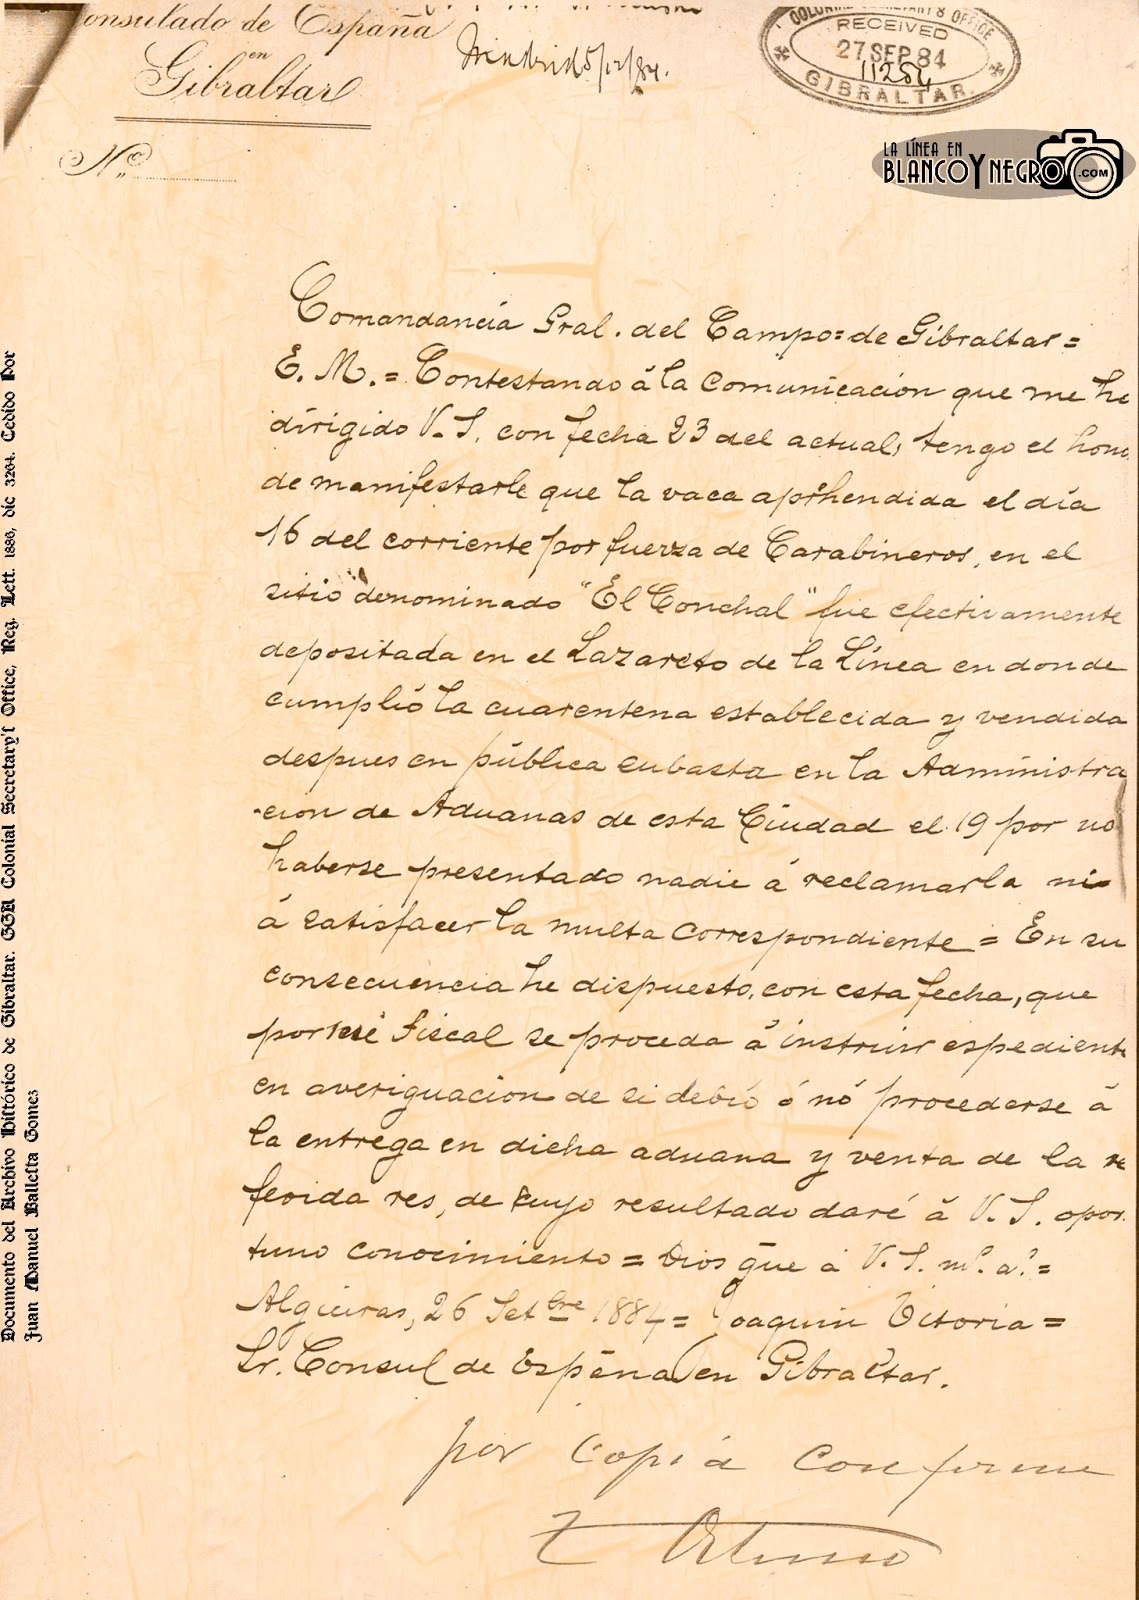 onsulado de España
en
Gibraltar
Nº
5/12/84.
COLONIAL SECRETARY'S OFFICE
RECEIVED
27 SEP 84
11254
GIBRALTAR.
LA LÍNEA EN
BLANCO Y NEGRO .COM
Comandancia Gral. del Campo=de Gibraltar=
E. M. = Contestando á la comunicacion que me he
dirigido V. S. con fecha 23 del actual, tengo el hono
de manifestarle que la vaca aprhendida el día
16 del corriente por fuerza de Carabineros, en el
sitio denominado "El Conchal" fue efectivamente
depositada en el Lazareto de la Línea en donde
cumplió la cuarentena establecida y vendida
despues en pública subasta en la Administra
-cion de Aduanas de esta Ciudad el 19 por no
haberse presentado nadie á reclamarla ni
á satisfacer la multa correspondiente = En su
consecuencia he dispuesto, con esta fecha, que
por Fiscal se proceda á instruir espediente
en averiguacion de si debió ó nó procederse á
la entrega en dicha aduana y venta de la re
ferida res, de cuyo resultado daré á V. S. opor
tuno conocimiento = Dios gue á V. S. ms. as. =
Algeciras, 26 Setbre 1884 = Joaquin Vitoria =
Sr. Consul de España en Gibraltar.
por Copia Conforme
Documento del Archivo Histórico de Gibraltar. GGA Colonial Secretary's Office, Reg. Lett. 1886, dic 3264. Cedido Por
Juan Manuel Ballesta Gomez